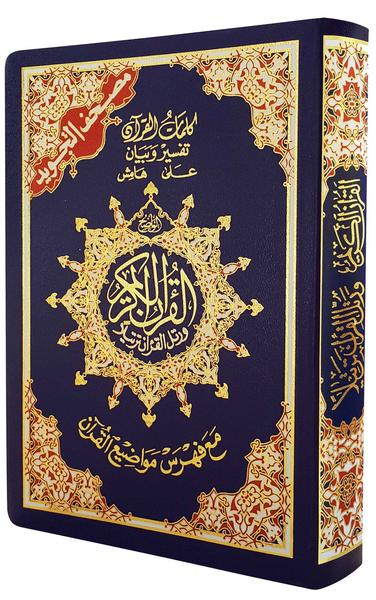 مصحف التجويد
كلمات القرآن
تفسير وبيان
على هامش
القرآن الكريم
ورتل القرآن ترتيلا
مع فهرس مواضيع القرآن
القرآن الكريم
ورتل القرآن ترتيلا